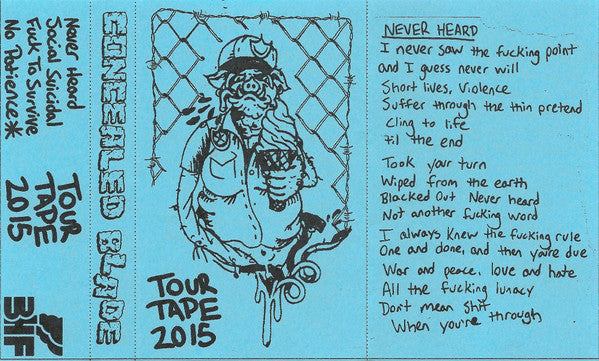 Never Heard
Social Suicidal
Fuck To Survive
No Patience*
TOUR
TAPE
2015
CONCEALED BLADE
TOUR
TAPE
2015
NEVER HEARD
I never saw the fucking point
and I guess never will
Short lives, Violence
Suffer through the thin pretend
Cling to life
til the end
Took your turn
Wiped from the earth
Blacked Out Never heard
Not another fucking word
I always knew the fucking rule
One and done, and then you're due
War and peace, love and hate
All the fucking lunacy
Don't mean shit
When you're through